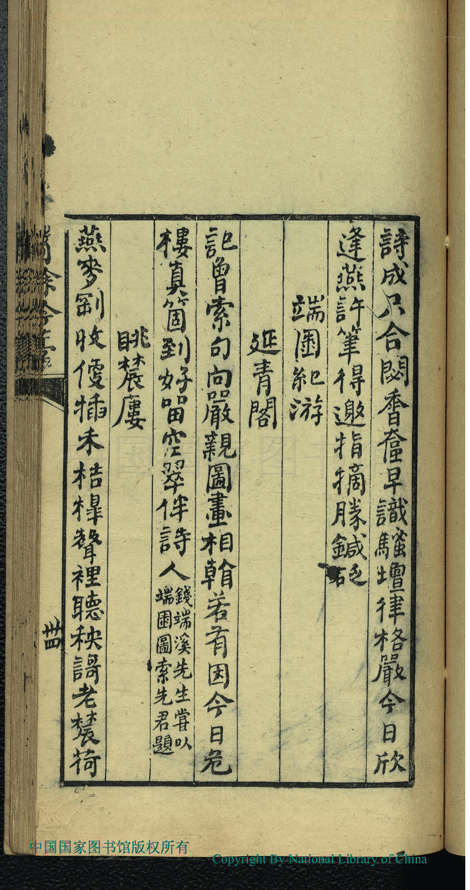 詩成只合閟香奩早識騷壇律格嚴今日欣
逢燕許筆得邀指摘勝鍼砭
端園紀游
延青閣
記曾索句向嚴親圖畫相翰若有因今日危
樓真箇到好留空翠伴詩人錢端溪先生嘗以
端園圖索先君題
眺蘘廔
燕麥剛收僾插禾桔槔聲裡聽秧謌老蘘荷
卌
中国国家图书馆版权所有
Copyright By National Library of China